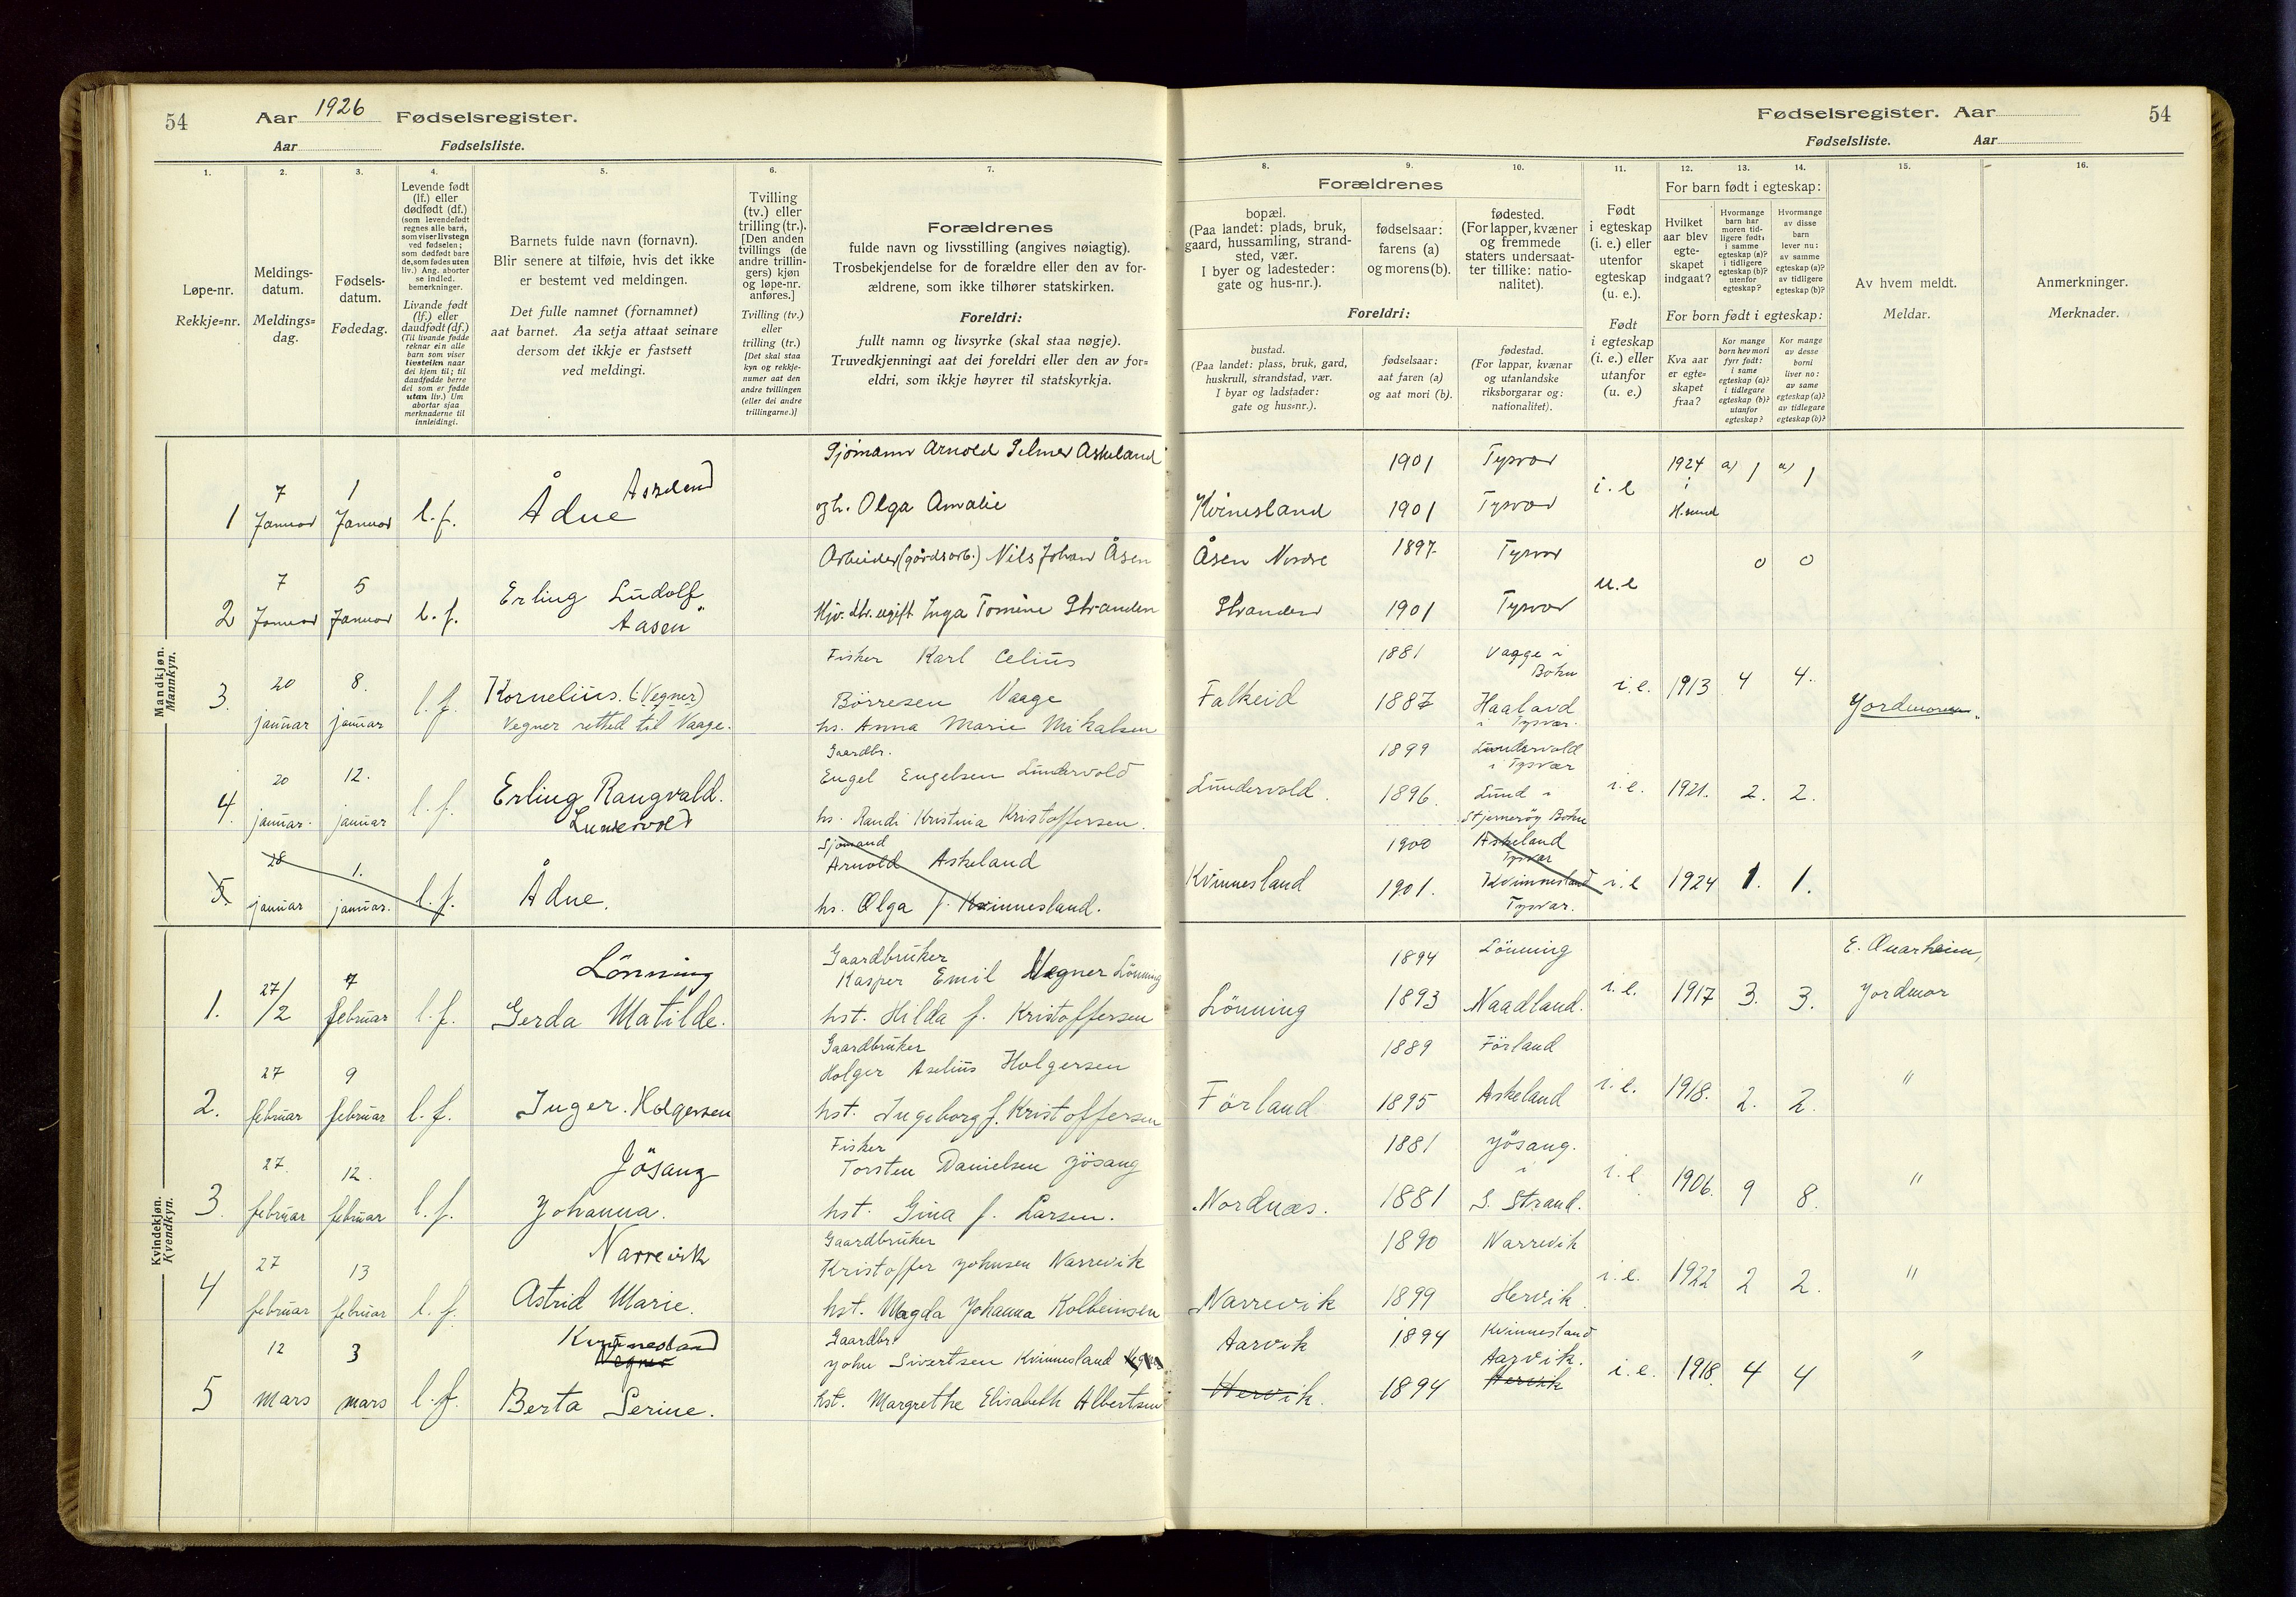 54 Aar 1926 Fødselsregister.
Aar Fødselsliste.
Fødselsregister. Aar 54
Fødselsliste. Aar
1. 2. 3. 4. 5. 6. 7. 8. 9. 10. 11. 12. 13. 14. 15. 16.
Løpe-nr.
Rekkje=nr.
Meldings-
datum.
Meldings=
dag.
Fødsels-
datum.
Fødedag.
Levende født
(lf.) eller
dødfødt (df.)
(som levendefødt
regnes alle barn,
som viser livstegn
ved fødselen;
som dødfødt bare
de, som fødes uten
liv.) Ang. aborter
se indled.
bemerkninger.
Livande født
(lf.) eller
daudfødt (df.)
(Til livande fødde
reknar ein alle
barn som viser
livsteikn naar
dei kjem til; til
daudfødde berre
dei som er fødde
utan liv.) Um
abortar sjaa
merknaderne til
innleidingi.
Barnets fulde navn (fornavn).
Blir senere at tilføie, hvis det ikke
er bestemt ved meldingen.
Det fulle namnet (fornamnet)
aat barnet. Aa setja attaat seinare
dersom det ikkje er fastsett
ved meldingi.
Tvilling
(tv.) eller
trilling (tr.).
[Den anden
tvillings (de
andre trillin-
gers) kjøn
og løpe-nr.
anføres.]
Tvilling (tv.)
eller
trilling (tr.)
[Det skal staa
kyn og rekkje-
numer aat den
andre tvillingen
(eller dei andre
trillingarne.)]
Forældrenes
fulde navn og livsstilling (angives nøiagtig).
Trosbekjendelse for de forældre eller den av for-
ældrene, som ikke tilhører statskirken.
Foreldri:
fullt namn og livsyrke (skal staa nøgje).
Truvedkjenningi aat dei foreldri eller den av for=
eldri, som ikkje høyrer til statskyrkja.
Forældrenes
bopæl.
(Paa landet: plads, bruk,
gaard, hussamling, strand-
sted, vær.
I byer og ladesteder:
gate og hus-nr.).
fødselsaar:
farens (a)
og morens (b).
fødested.
(For lapper, kvæner
og fremmede
staters undersaat-
ter tillike: natio-
nalitet).
Foreldri:
bustad.
(Paa landet: plass, bruk, gard,
huskrull, strandstad, vær.
I byar og ladstader:
gate og hus=nr.).
fødselsaar:
aat faren (a)
og aat mori (b).
fødestad.
(For lappar, kvænar
og utanlandske
riksborgarar og:
nationalitet).
Født
i egteskap
(i. e.) eller
utenfor
egteskap
(u. e.).
Født
i egteskap
(i. e.) eller
utanfor
(u. e.)
For barn født i egteskap:
Hvilket
aar blev
egte-
skapet
indgaat?
Hvormange
barn har
moren tid-
ligere født:
i samme
egteskap (a)?
i tidligere
egteskap (b)?
utenfor
egteskap?
Hvormange
av disse
barn
lever nu:
av samme
egteskap (a)?
av tidligere
egteskap (b)?
For born født i egteskap:
Kva aar
er egte=
skapet
fraa?
Kor mange
born hev mori
fyrr født:
i same
egteskap (a)?
i tidlegare
egteskap (b)?
utanfor
egteskap?
Kor mange
av desse
borni
liver no:
av same
egteskap (a)?
av tidlegare
egteskap (b)?
Av hvem meldt.
Meldar.
Anmerkninger.
Merknader.
Mandkjøn.
Mannkyn.
Sjömann Arnold Selmer Askeland 1901 Tysvær 1924 a) 1 a) 1
7 1 Askeland i.e i
1 Januar Januar l.f. Ådne ogh. Olga Amalie Kvinesland 1901 Tysvær H.sund
Arbeider (gårdsarb.) Nils Johan Åsen Åsen Nordre 1897 Tysvær 0 0
7 5 Erling Ludolf u.e
2 Januar Januar l.f. Aasen Hjv. dtr. ugift Inga Tomine Stranden Stranden 1901 Tysvær
Fisker Karl Celius 1881 Vaage i Bokn
20 8. Kornelius. (: Vegner) Börresen Vaage Falkeid 1887 Haaland i.e. 1913 4 4.
3. januar januar l.f. Vegner rettet til Vaage. hs. Anna Marie Mikalsen i Tysvær. Jordmoren.
Gaardbr. 1899 Lundervold
20 12. Engel Engelsen Lundervold i Tysvær
4. januar. januar l.f. Erling Rangvald. Lundervold. 1896. Lund i i.e. 1921. 2. 2.
Lundervold hs. Randi Kristina Kristoffersen. Stjernerøy Bokn
Sjömand 1900 Askeland
28 1. Arnold Askeland Tysvær
5. januar januar. l.f. Ådne. Kvinnesland 1901. Kvinnesland i.e 1924 1. 1.
hs. Olga f. Kvinnesland. Tysvær.
Kvindekjøn.
Kvendkyn.
Lönning Gaardbruker 1894 Lönning E. Quarheim,
27/ 7 Kasper Emil Vegner Lönning
1. /2 februar l.f. Gerda Matilde. hst. Hilda f. Kristoffersen Lönning 1893 Naadland. i.e. 1917 3. 3. Jordmor
Gaardbruker 1889 Förland
27 9 Holger Aselius Holgersen
2. februar februar l.f. Inger. Holgersen hst. Ingeborg f. Kristoffersen Förland 1895 Askeland i.e. 1918. 2. 2. "
Jösang Fisker 1881 Jösang.
27. 12. Torsten Danielsen Jösang i
3. februar februar l.f. Johanna. hst. Gina f. Larsen. Nordnæs. 1881 S. Strand. i.e 1906. 9 8. "
Narrevik Gaardbruker 1890 Narrevik
27 13 Kristoffer Johnsen Narrevik
4 februar februar l.f. Astrid Marie. hst. Magda Johanna Kolbeinsen Narrevik 1899 Hervik. i.e. 1922 2 2. "
Kvinnesland Gaardbr. Aarvik 1894 Kvinnesland
12 3 Vegner John Sivertsen Kvinnesland Aarvik. "
5 mars mars l.f. Berta Serine. hst. Margrethe Elisabeth Albertsen Hervik. 1894 Hervik i.e. 1918. 4 4